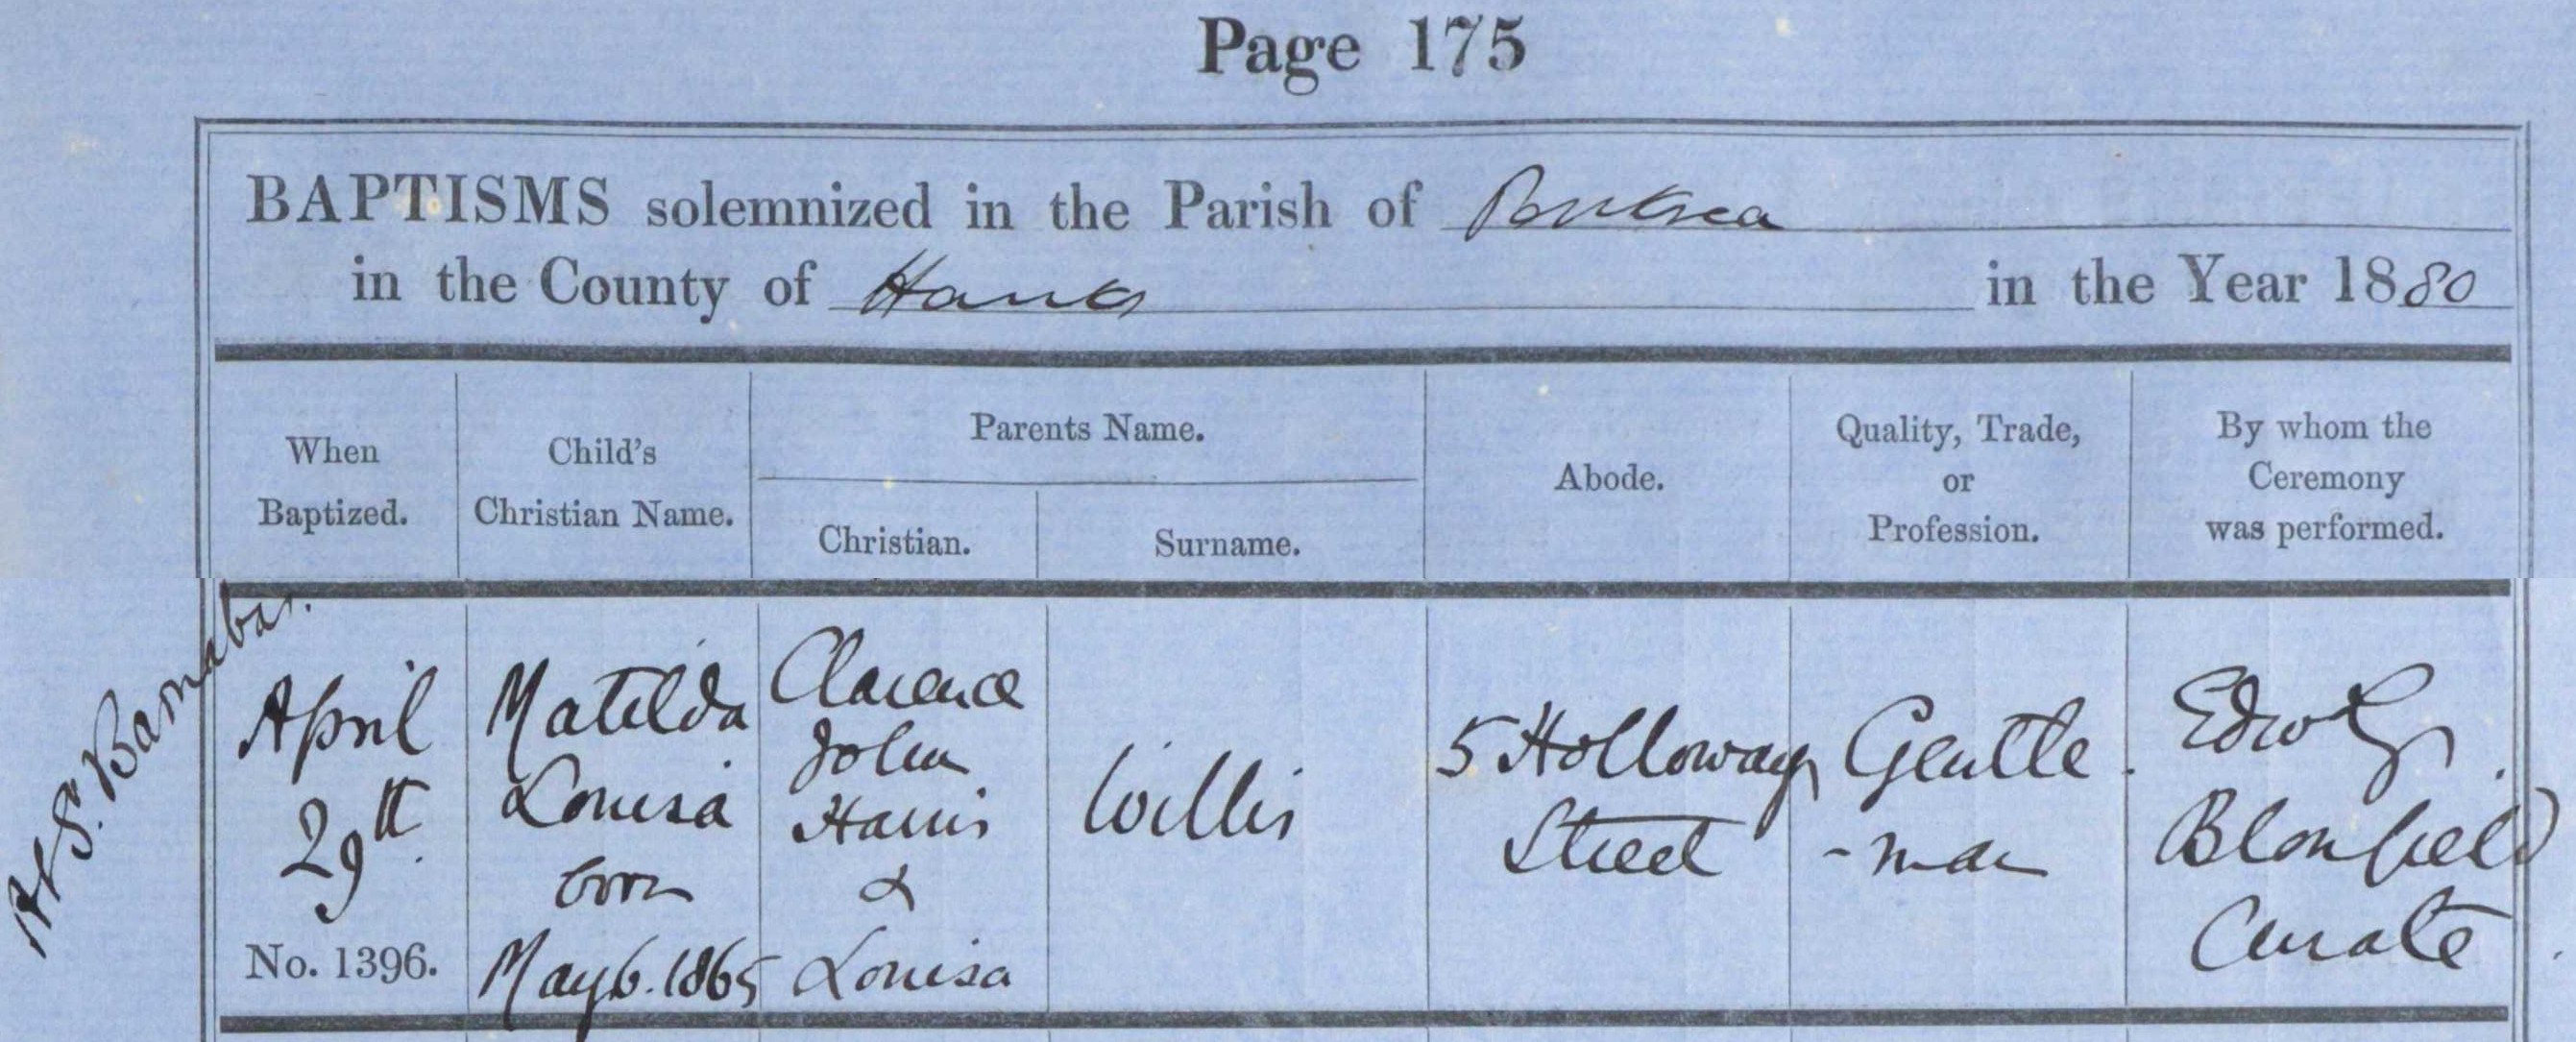 Page 175
BAPTISMS solemnized in the Parish of Portsea
in the County of Hants in the Year 1880
When
Baptized.
Child's
Christian Name.
Parents Name.
Christian.
Surname.
Abode.
Quality, Trade,
or
Profession.
By whom the
Ceremony
was performed.
At S. Barnabas.
April
29th
No. 1396.
Matilda
Louisa
born
May 6. 1865
Clarence
John
Harris
&
Louisa
Willis
5 Holloway
Street
Gentle
-man
Edw
Blomfield
Curate